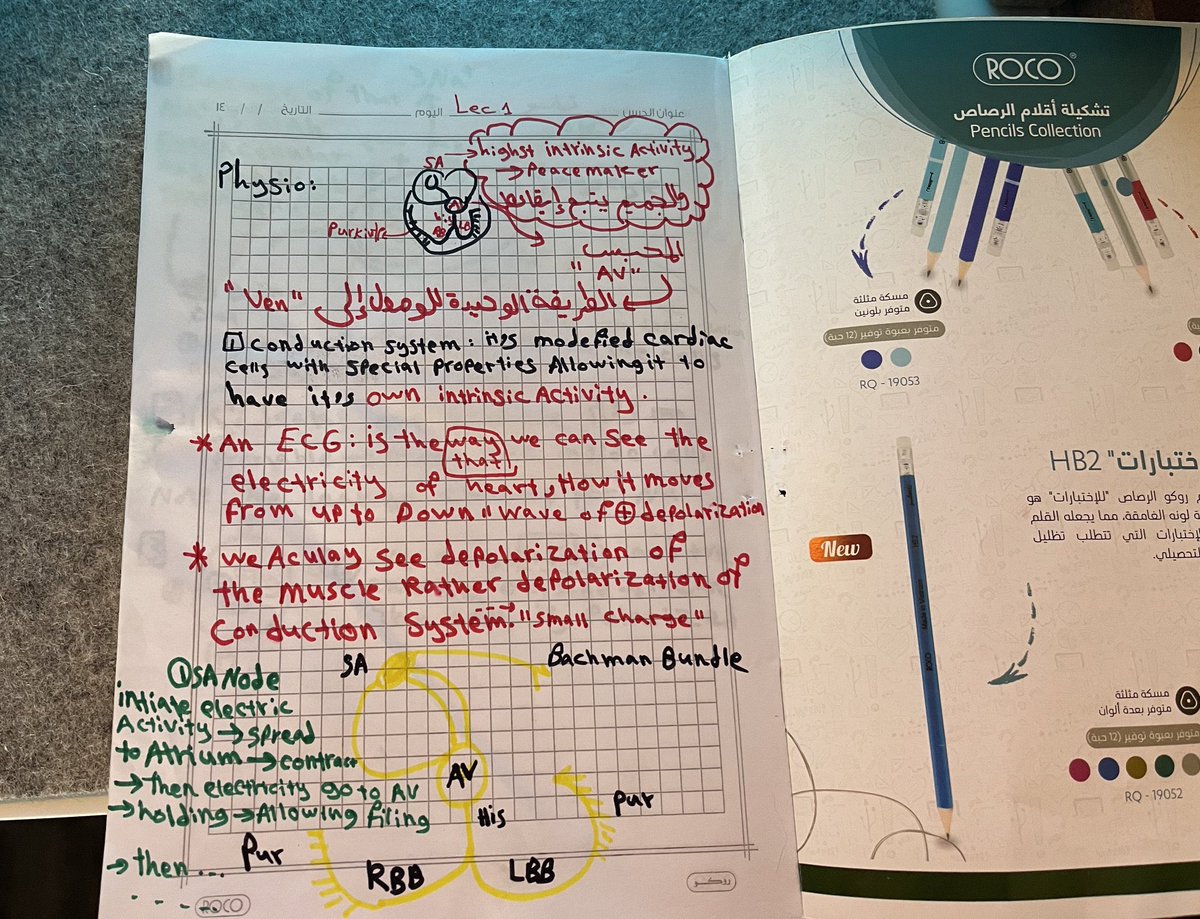 عنوان الدرس
اليوم
التاريخ / / ١٤
Lec 1
Physio:
SA → highst intrinsic Activity
→ Peacemaker
والجميع يتبع إيقاعه
AV
his
RB LB
المحبس
"AV"
الطريقة الوحيدة للوصول إلى "Ven"
1 conduction system: it's modefied cardiac
cells with special properties Allowing it to
have it's own intrinsic Activity.
* An ECG: is the way we can see the
that
electricity of heart, How it moves
from up to Down "wave of + depolarization
* we Aculay see depolarization of
the muscle Rather depolarization of
Conduction System. "small charge"
SA
Bachman Bundle
① SA Node
intiate electric
Activity → spread
to Atrium → contract
→ Then electricity go to AV
→ holding → Allowing filing
→ then ...
.....
AV
His
Pur
Pur
RBB
LBB
ROCO
روكو
ROCO
تشكيلة أقلام الرصاص
Pencils Collection
مسكة مثلثة
متوفر بلونين
متوفر بعبوة توفير (12 حبة)
RQ - 19053
ختبارات" HB2
م روكو الرصاص "للإختبارات" هو
ة لونه الغامقة، مما يجعله القلم
لإختبارات التي تتطلب تظليل
لتحصيلي.
New
ROCO
مسكة مثلثة
متوفر بعدة ألوان
متوفر بعبوة توفير (12 حبة)
RQ - 19052